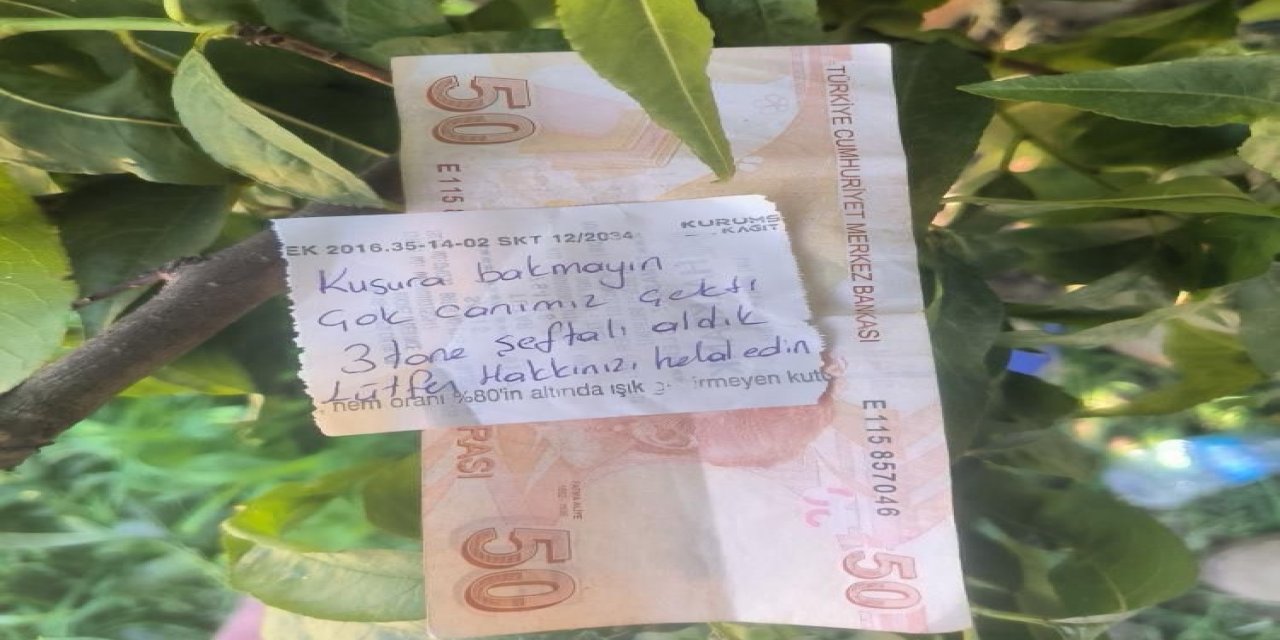 50
E 115 8
TÜRKİYE CUMHURİYET MERKEZ BANKASI
KURUMS
KAGIT
EK 2016.35-14-02 SKT 12/2034
Kusura bakmayın
Çok canımız çekti
3 tane şeftali aldık
Lütfen Hakkınızı helal edin
nem oranı %80'in altında ışık
irmeyen kutu
RASI
E 115 857046
50
50